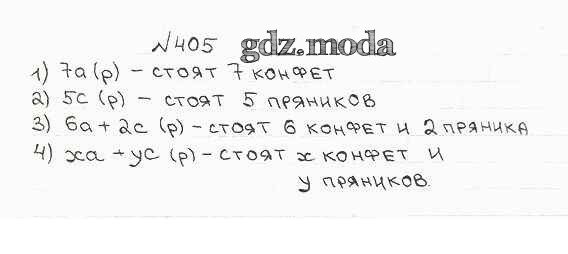 №405 gdz.moda
1) 7а (р) – стоят 7 конфет
2) 5с (р) – стоят 5 пряников
3) 6а + 2с (р) – стоят 6 конфет и 2 пряника
4) xа + yс (р) – стоят x конфет и
y пряников.